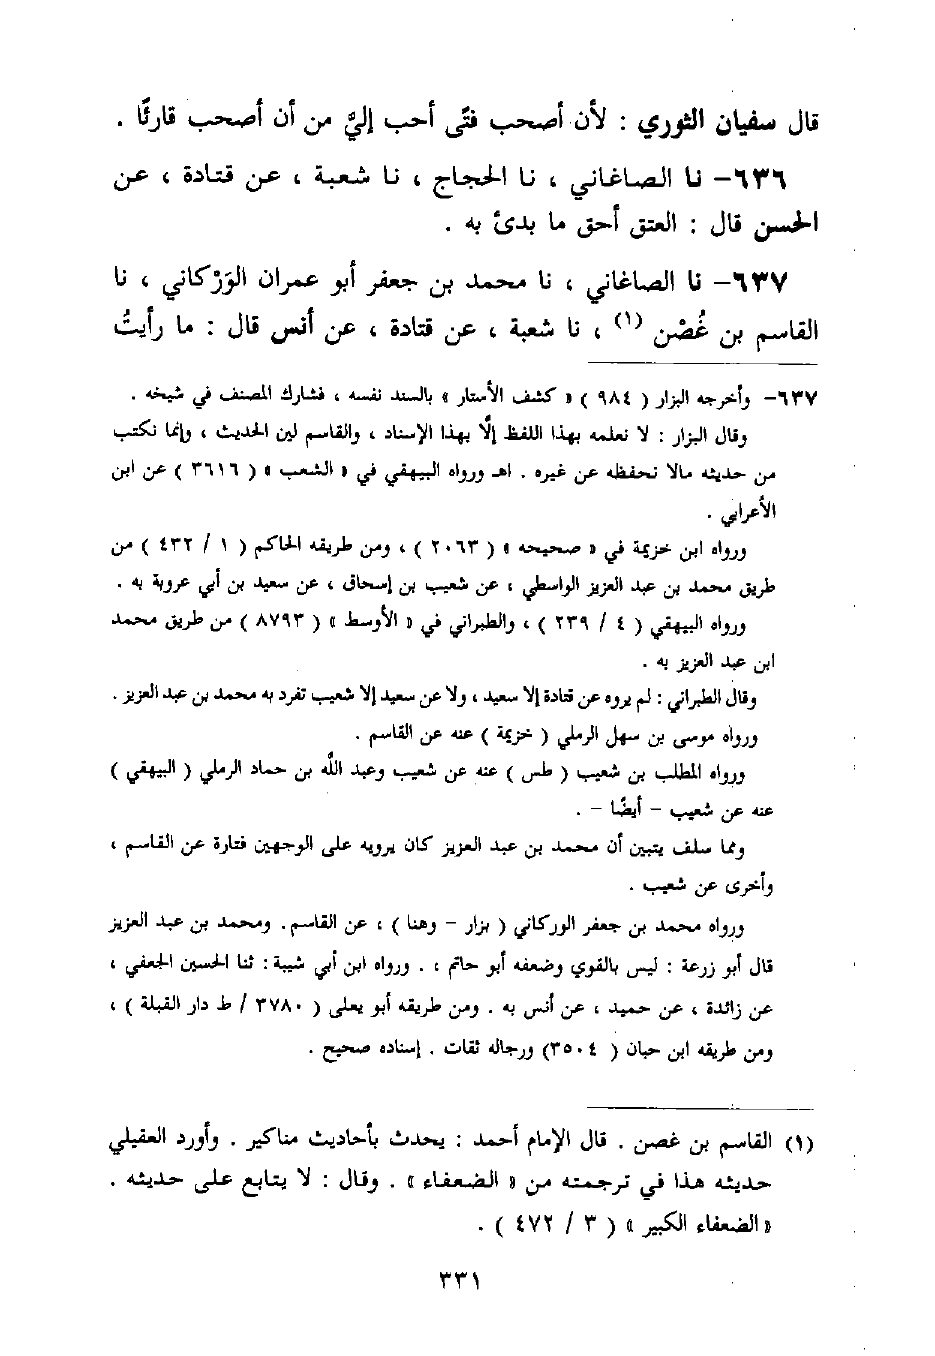 قال سفيان الثوري : لأن أصحب فتًى أحب إليَّ من أن أصحب قارئًا .
٦٣٦- نا الصاغاني ، نا الحجاج ، نا شعبة ، عن قتادة ، عن
الحسن قال : العتق أحق ما بدئ به .
٦٣٧- نا الصاغاني ، نا محمد بن جعفر أبو عمران الوَرْكاني ، نا
القاسم بن غُصْن (١) ، نا شعبة ، عن قتادة ، عن أنس قال : ما رأيتُ
٦٣٧- وأخرجه البزار ( ٩٨٤ ) « كشف الأستار » بالسند نفسه ، فشارك المصنف في شيخه .
وقال البزار : لا نعلمه بهذا اللفظ إلَّا بهذا الإسناد ، والقاسم لين الحديث ، وإنما نكتب
من حديثه مالا نحفظه عن غيره . اهـ ورواه البيهقي في « الشعب » ( ٣٦١٦ ) عن ابن
الأعرابي .
ورواه ابن خزيمة في « صحيحه » ( ٢٠٦٣ ) ، ومن طريقه الحاكم ( ١ / ٤٣٢ ) من
طريق محمد بن عبد العزيز الواسطي ، عن شعيب بن إسحاق ، عن سعيد بن أبي عروبة به .
ورواه البيهقي ( ٤ / ٢٣٩ ) ، والطبراني في « الأوسط » ( ٨٧٩٣ ) من طريق محمد
ابن عبد العزيز به .
وقال الطبراني : لم يروه عن قتادة إلا سعيد ، ولا عن سعيد إلا شعيب تفرد به محمد بن عبد العزيز .
ورواه موسى بن سهل الرملي ( خزيمة ) عنه عن القاسم .
ورواه المطلب بن شعيب ( طس ) عنه عن شعيب وعبد اللَّه بن حماد الرملي ( البيهقي )
عنه عن شعيب - أيضًا - .
ومما سلف يتبين أن محمد بن عبد العزيز كان يرويه على الوجهين فتارة عن القاسم ،
وأخرى عن شعيب .
ورواه محمد بن جعفر الوركاني ( بزار - وهنا ) ، عن القاسم . ومحمد بن عبد العزيز
قال أبو زرعة : ليس بالقوي وضعفه أبو حاتم ، . ورواه ابن أبي شيبة : ثنا الحسين الجعفي ،
عن زائدة ، عن حميد ، عن أنس به . ومن طريقه أبو يعلى ( ٣٧٨٠ / ط دار القبلة ) ،
ومن طريقه ابن حبان ( ٣٥٠٤) ورجاله ثقات . إسناده صحيح .
(١) القاسم بن غصن . قال الإمام أحمد : يحدث بأحاديث مناكير . وأورد العقيلي
حديثه هذا في ترجمته من « الضعفاء » . وقال : لا يتابع على حديثه .
« الضعفاء الكبير » ( ٣ / ٤٧٢ ) .
٣٣١